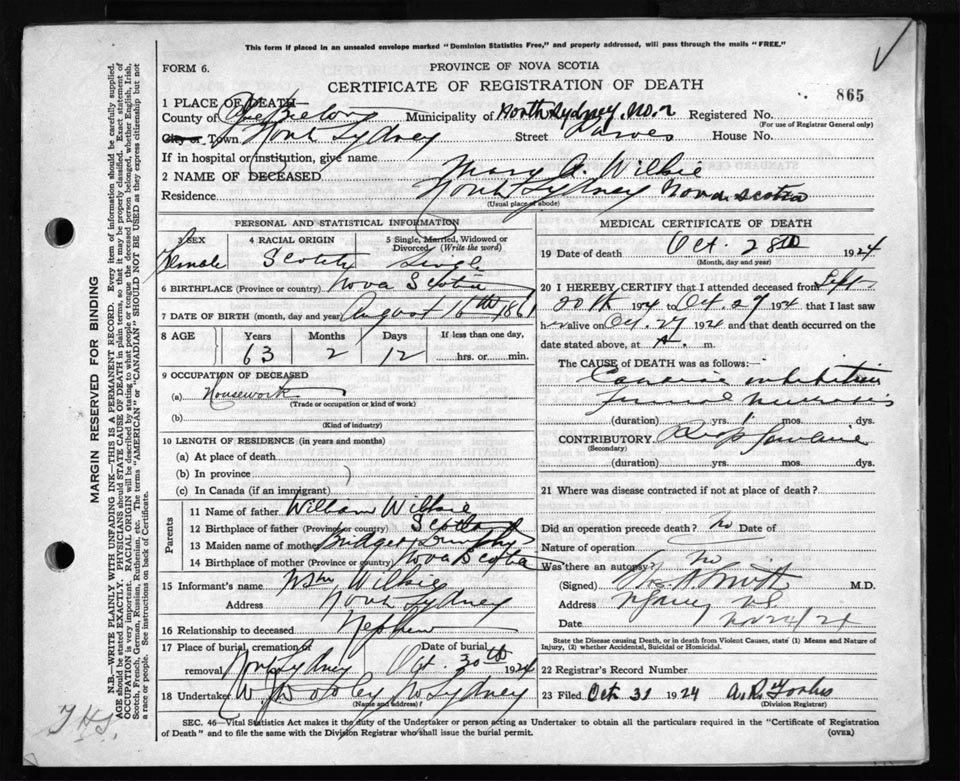 This form if placed in an unsealed envelope marked "Dominion Statistics Free," and properly addressed, will pass through the mails "FREE."
FORM 6.
PROVINCE OF NOVA SCOTIA
CERTIFICATE OF REGISTRATION OF DEATH
865
1 PLACE OF DEATH—
County of Cape Breton Municipality of North Sydney. No. 2 Registered No.
(For use of Registrar General only)
City or Town North Sydney Street Purves House No.
If in hospital or institution, give name
2 NAME OF DECEASED Mary A. Wilkie
Residence North Sydney Nova Scotia
(Usual place of abode)
PERSONAL AND STATISTICAL INFORMATION
3 SEX 4 RACIAL ORIGIN 5 Single, Married, Widowed or Divorced (Write the word)
Female Scotch Single
6 BIRTHPLACE (Province or country) Nova Scotia
7 DATE OF BIRTH (month, day and year) August 16th 1861
8 AGE Years Months Days If less than one day,
63 2 12 hrs. or min.
9 OCCUPATION OF DECEASED
(a) Housework
(Trade or occupation or kind of work)
(b)
(Kind of industry)
10 LENGTH OF RESIDENCE (in years and months)
(a) At place of death
(b) In province
(c) In Canada (if an immigrant)
Parents
11 Name of father William Wilkie
12 Birthplace of father (Province or country) Scotland
13 Maiden name of mother Bridget
14 Birthplace of mother (Province or country) Nova Scotia
15 Informant's name Wilkie
Address North Sydney
16 Relationship to deceased Nephew
17 Place of burial, cremation or removal North Sydney Date of burial Oct. 30th 1924
18 Undertaker Dooley N. Sydney
(Name and address)
MEDICAL CERTIFICATE OF DEATH
19 Date of death Oct. 28th 1924
(Month, day and year)
20 I HEREBY CERTIFY that I attended deceased from Sept
20th 1924 to Oct. 27 1924 that I last saw
her alive on Oct. 27 1924 and that death occurred on
date stated above, at A. m.
The CAUSE OF DEATH was as follows:
(duration) yrs. 1 mos. dys.
CONTRIBUTORY
(Secondary)
(duration) yrs. mos. dys.
21 Where was disease contracted if not at place of death?
Did an operation precede death? No Date of
Nature of operation
Was there an autopsy? No
(Signed) M.D.
Address
Date
State the Disease causing Death, or in death from Violent Causes, state (1) Means and Nature of Injury, (2) whether Accidental, Suicidal or Homicidal.
22 Registrar's Record Number
23 Filed Oct 31 1924 A. R. Forbes
(Division Registrar)
SEC. 46—Vital Statistics Act makes it the duty of the Undertaker or person acting as Undertaker to obtain all the particulars required in the "Certificate of Registration
of Death" and to file the same with the Division Registrar who shall issue the burial permit.
(OVER)
MARGIN RESERVED FOR BINDING
N.B.—WRITE PLAINLY WITH UNFADING INK—THIS IS A PERMANENT RECORD. Every item of information should be carefully supplied.
AGE should be stated EXACTLY. PHYSICIANS should STATE CAUSE OF DEATH in plain terms, so that it may be properly classified. Exact statement of
OCCUPATION is very important. RACIAL ORIGIN will be described by stating to what people or tongue the deceased person belonged, whether English, Irish,
Scotch, French, German, Russian, Ruthenian, etc. The terms "AMERICAN" or "CANADIAN" SHOULD NOT BE USED as they express citizenship but not
a race or people. See instructions on back of Certificate.